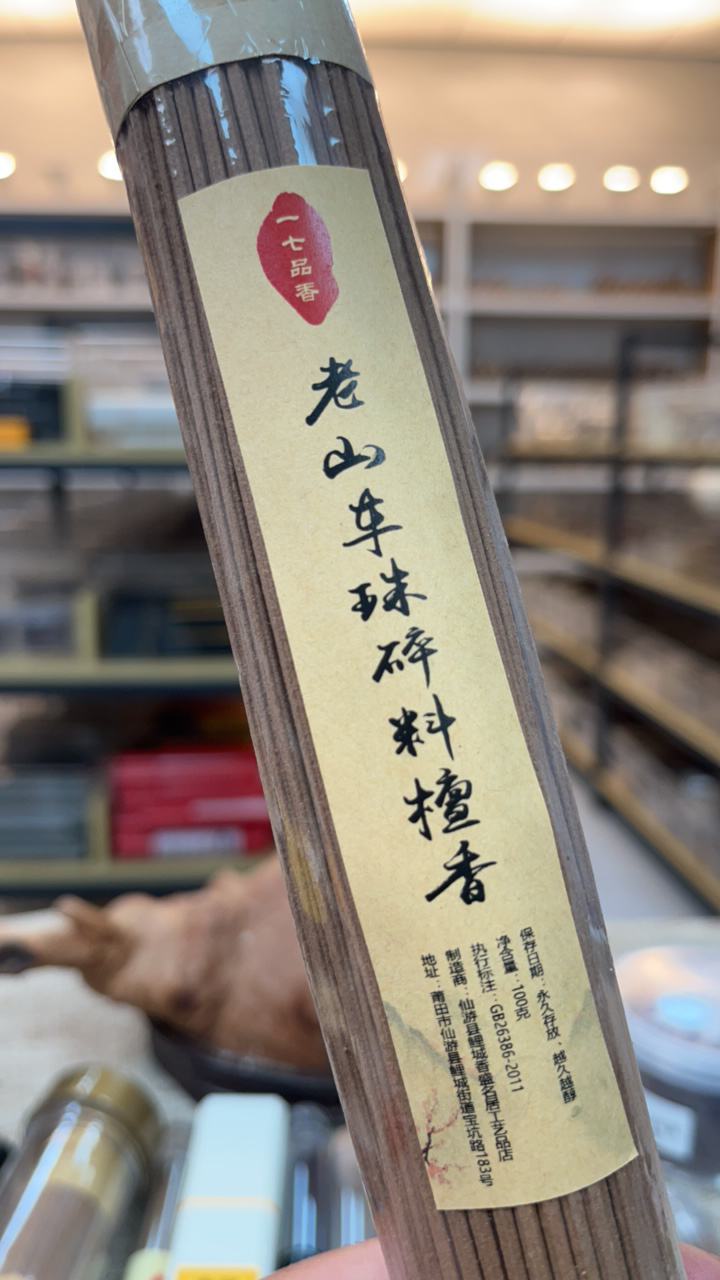 一七品香
老山车珠碎料檀香
保存日期：永久存放，越久越醇
净含量：100克
执行标注：GB26386-2011
制造商：仙游县鲤城香盛名居工艺品店
地址：莆田市仙游县鲤城街道宝坑路183号